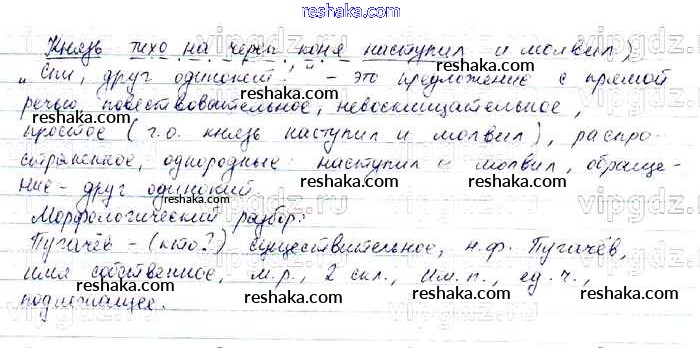 reshaka.com
Князь тихо на череп коня наступил и молвил,
„Спи, друг одинокий!" – это предложение с прямой
речью повествовательное, невосклицательное,
простое (г.о. князь наступил и молвил), распро-
reshaka.com reshaka.com
странённое, однородные: наступил и молвил, обраще-
reshaka.com reshaka.com
ние – друг одинокий.
reshaka.com
Морфологический разбор:
reshaka.com reshaka.com
Пугачёв – (кто?) существительное, н.ф. Пугачёв,
имя собственное, м.р., 2 скл., им.п., ед.ч.,
reshaka.com reshaka.com reshaka.com
подлежащее.
vipgdz.ru